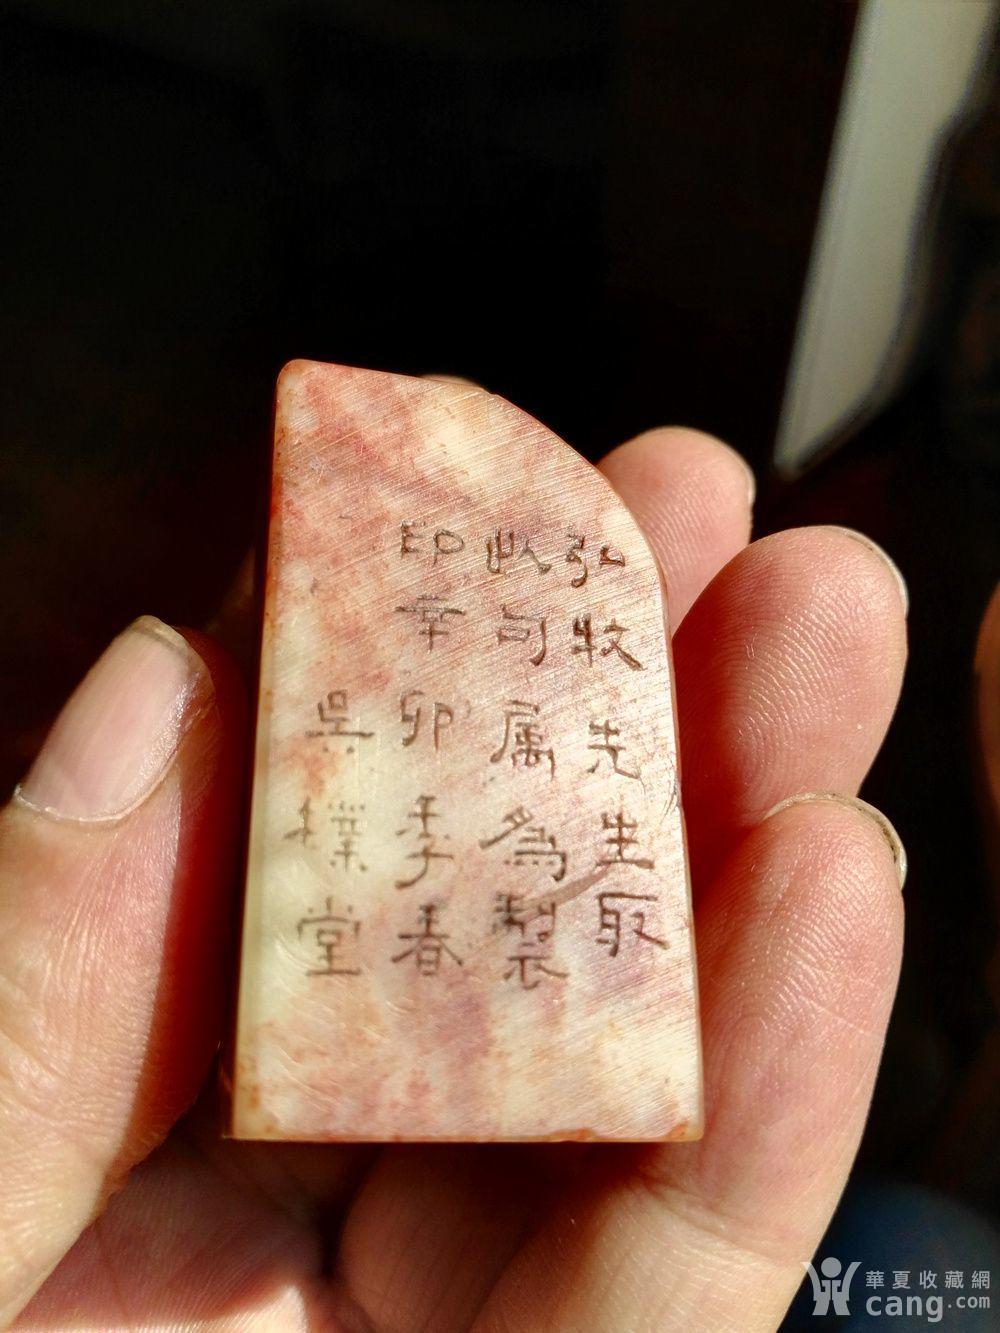 弘牧先生取
此句属為製
印辛卯季春
吳樸堂
華夏收藏網
cang.com